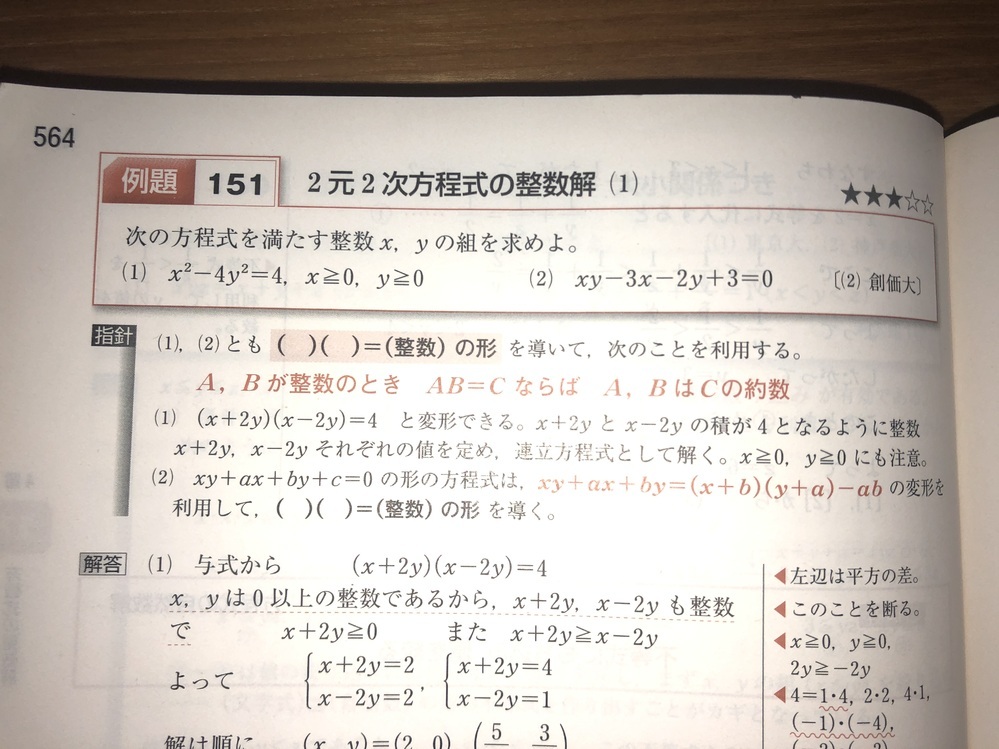 564
例題 151 2元2次方程式の整数解 (1) ★★★☆☆
次の方程式を満たす整数 x, y の組を求めよ。
(1) x²−4y²=4, x≧0, y≧0 (2) xy−3x−2y+3=0 〔(2) 創価大〕
指針 (1), (2) とも ( )( )=(整数) の形 を導いて, 次のことを利用する。
A, B が整数のとき AB=C ならば A, B は C の約数
(1) (x+2y)(x−2y)=4 と変形できる。x+2y と x−2y の積が 4 となるように整数
x+2y, x−2y それぞれの値を定め, 連立方程式として解く。x≧0, y≧0 にも注意。
(2) xy+ax+by+c=0 の形の方程式は, xy+ax+by=(x+b)(y+a)−ab の変形を
利用して, ( )( )=(整数) の形 を導く。
解答 (1) 与式から (x+2y)(x−2y)=4
x, y は 0 以上の整数であるから, x+2y, x−2y も整数
で x+2y≧0 また x+2y≧x−2y
よって { x+2y=2 x−2y=2 , { x+2y=4 x−2y=1
解は順に (x, y)=(2, 0), (5 3
◀左辺は平方の差。
◀このことを断る。
◀x≧0, y≧0,
2y≧−2y
◀4=1·4, 2·2, 4·1,
(−1)·(−4),